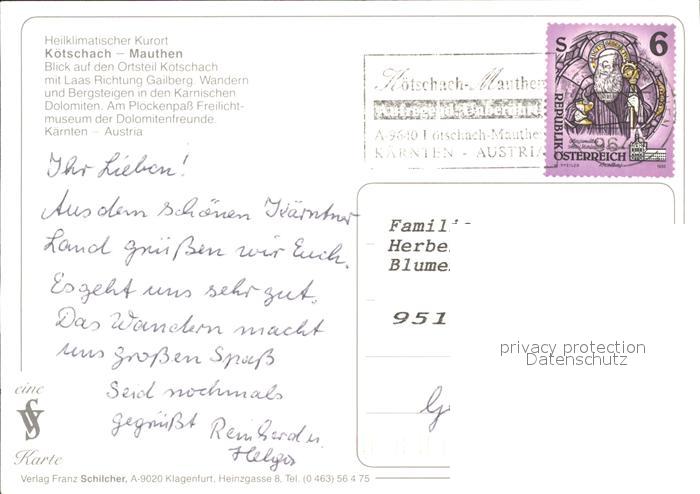 Heilklimatischer Kurort
Kötschach – Mauthen
Blick auf den Ortsteil Kötschach
mit Laas Richtung Gailberg. Wandern
und Bergsteigen in den Karnischen
Dolomiten. Am Plöckenpaß Freilicht-
museum der Dolomitenfreunde.
Kärnten – Austria
Kötschach-Mauthen
A-9640 Kötschach-Mauthen
KÄRNTEN - AUSTRIA
S 6
REPUBLIK
ÖSTERREICH
Ihr Lieben!
Aus dem schönen Kärntner
Land grüßen wir Euch.
Es geht uns sehr gut.
Das Wandern macht
uns großen Spaß
Seid nochmals
gegrüßt Reinhard u.
Helga
Famili
Herbe
Blume
951
privacy protection
Datenschutz
eine
Karte
Verlag Franz Schilcher, A-9020 Klagenfurt, Heinzgasse 8, Tel. (0 463) 56 4 75